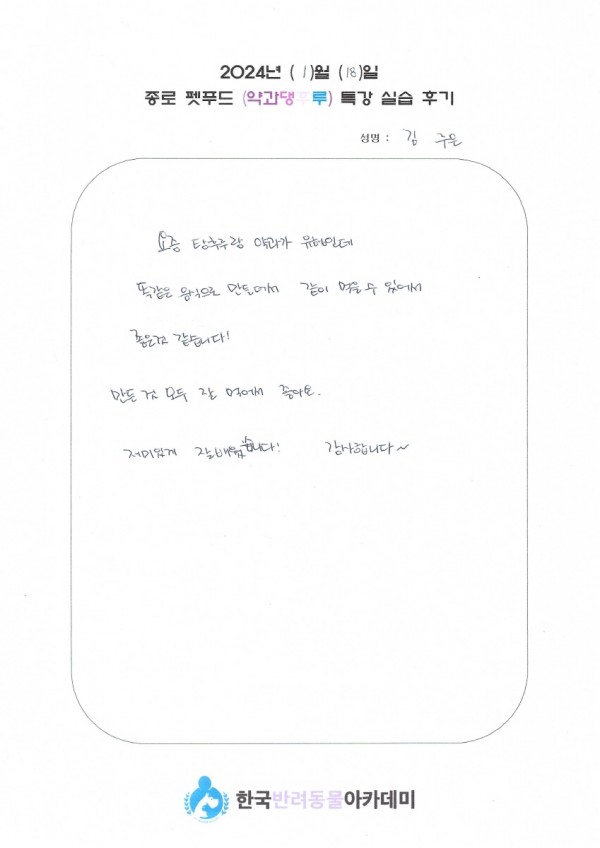 2024년 ( 1 )월 ( 18 )일
종로 펫푸드 (약과댕후루) 특강 실습 후기
성명 : 김 주은
요즘 탕후루랑 약과가 유행인데
똑같은 음식으로 만들어서 같이 먹을 수 있어서
좋은것 같습니다!
만든 것 모두 잘 먹어서 좋아요.
재미있게 잘배웠습니다! 감사합니다~
한국반려동물아카데미